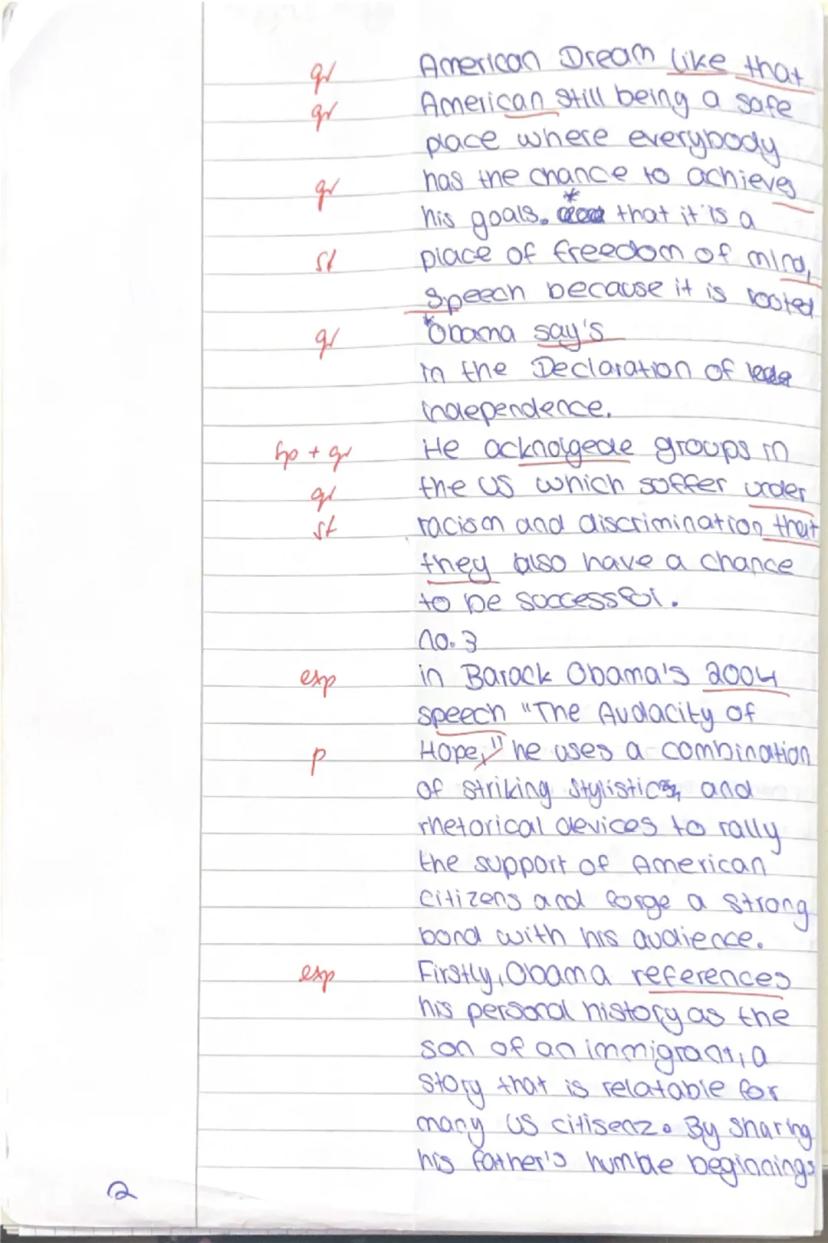 gr American Dream like that
gr American still being a safe
place where everybody
gr has the chance to achieves
his goals. * that it is a
st place of freedom of mind,
speech because it is rooted
gr *Obama say's
in the Declaration of
independence.
sp + gr He acknolgede groups in
gr the US which suffer under
st racism and discrimination that
they also have a chance
to be successful.
no. 3
exp in Barack Obama's 2004
speech "The Audacity of
p Hope," he uses a combination
of striking stylistic, and
rhetorical devices to rally
the support of American
citizens and forge a strong
bond with his audience.
exp Firstly, Obama references
his personal history as the
son of an immigrant, a
story that is relatable for
many US citisenz. By sharing
his father's humble beginnings
2